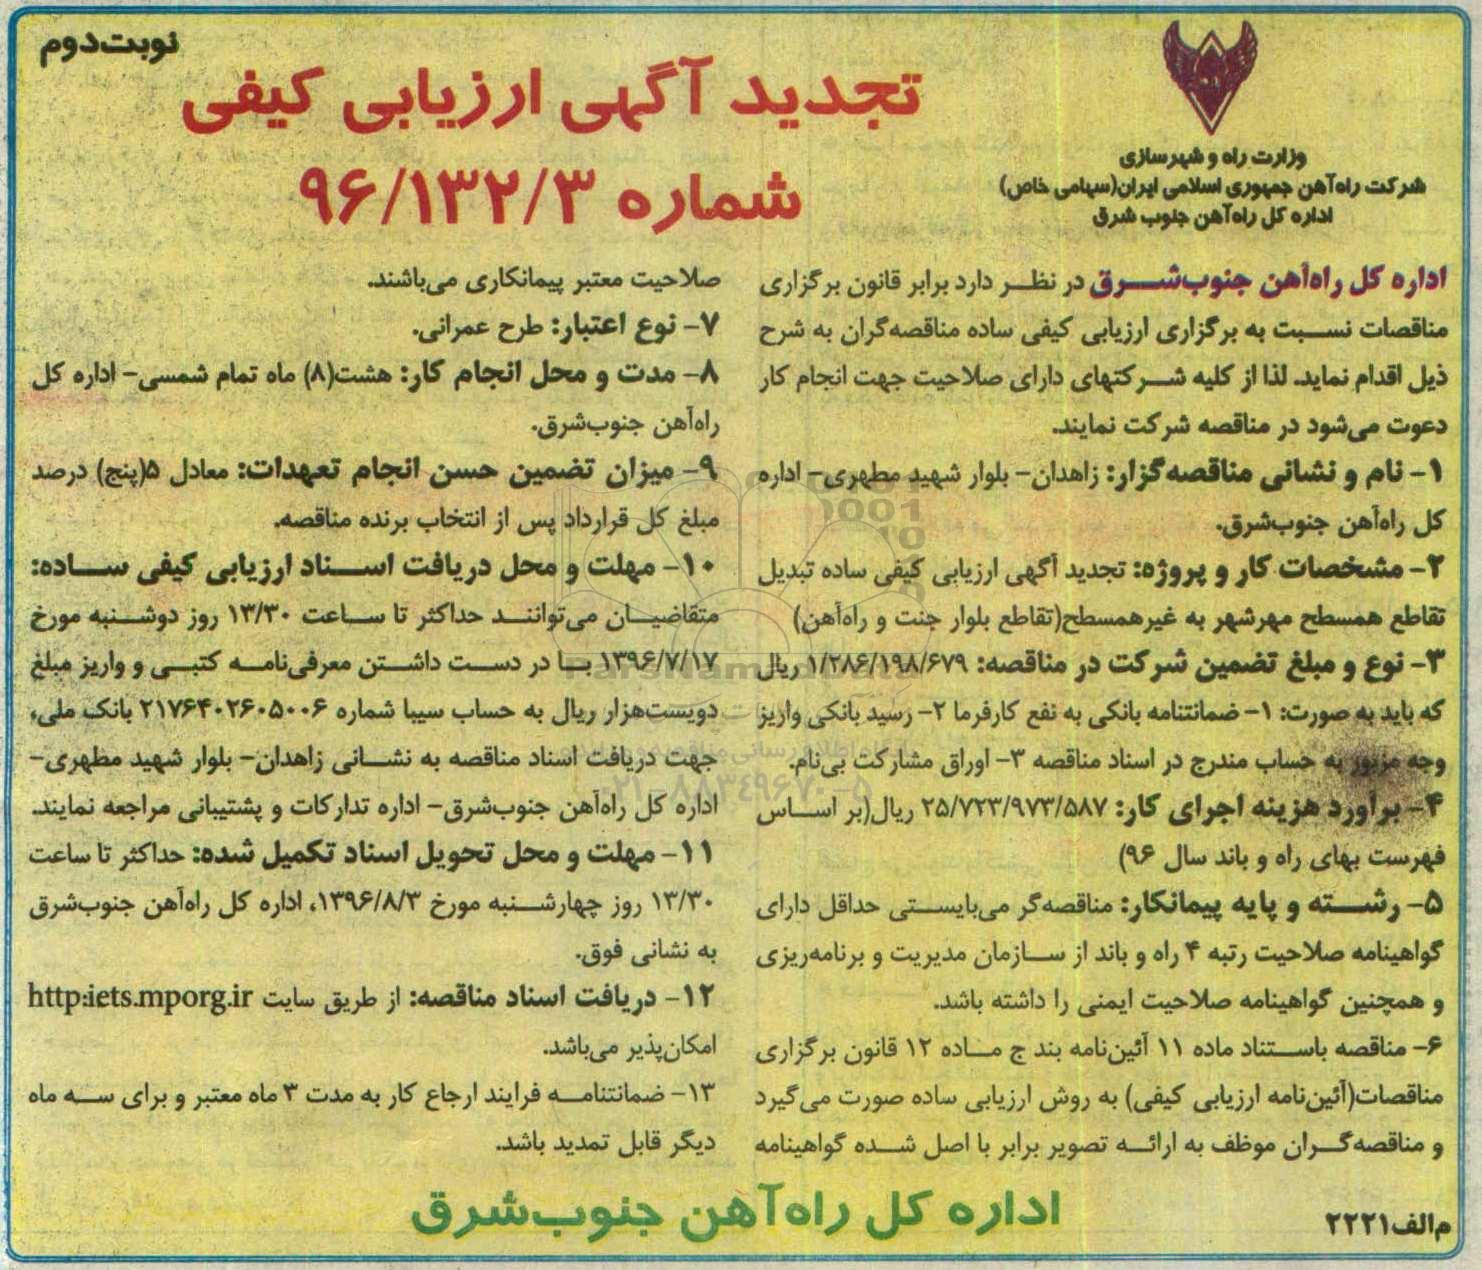 نوبت‌دوم
تجدید آگهی ارزیابی کیفی
شماره ۹۶/۱۳۲/۳
وزارت راه و شهرسازی
شرکت راه‌آهن جمهوری اسلامی ایران(سهامی خاص)
اداره کل راه‌آهن جنوب شرق
اداره کل راه‌آهن جنوب‌شرق در نظر دارد برابر قانون برگزاری
مناقصات نسبت به برگزاری ارزیابی کیفی ساده مناقصه‌گران به شرح
ذیل اقدام نماید. لذا از کلیه شرکتهای دارای صلاحیت جهت انجام کار
دعوت می‌شود در مناقصه شرکت نمایند.
۱- نام و نشانی مناقصه‌گزار: زاهدان- بلوار شهید مطهری- اداره
کل راه‌آهن جنوب‌شرق.
۲- مشخصات کار و پروژه: تجدید آگهی ارزیابی کیفی ساده تبدیل
تقاطع همسطح مهرشهر به غیرهمسطح(تقاطع بلوار جنت و راه‌آهن)
۳- نوع و مبلغ تضمین شرکت در مناقصه: ۱/۲۸۶/۱۹۸/۶۷۹ ریال
که باید به صورت: ۱- ضمانتنامه بانکی به نفع کارفرما ۲- رسید بانکی واریز
وجه مزبور به حساب مندرج در اسناد مناقصه ۳- اوراق مشارکت بی‌نام.
۴- برآورد هزینه اجرای کار: ۲۵/۷۲۳/۹۷۳/۵۸۷ ریال(بر اساس
فهرست بهای راه و باند سال ۹۶)
۵- رشته و پایه پیمانکار: مناقصه‌گر می‌بایستی حداقل دارای
گواهینامه صلاحیت رتبه ۴ راه و باند از سازمان مدیریت و برنامه‌ریزی
و همچنین گواهینامه صلاحیت ایمنی را داشته باشد.
۶- مناقصه باستناد ماده ۱۱ آئین‌نامه بند ج ماده ۱۲ قانون برگزاری
مناقصات(آئین‌نامه ارزیابی کیفی) به روش ارزیابی ساده صورت می‌گیرد
و مناقصه‌گران موظف به ارائه تصویر برابر با اصل شده گواهینامه
صلاحیت معتبر پیمانکاری می‌باشند.
۷- نوع اعتبار: طرح عمرانی.
۸- مدت و محل انجام کار: هشت(۸) ماه تمام شمسی- اداره کل
راه‌آهن جنوب‌شرق.
۹- میزان تضمین حسن انجام تعهدات: معادل ۵(پنج) درصد
مبلغ کل قرارداد پس از انتخاب برنده مناقصه.
۱۰- مهلت و محل دریافت اسناد ارزیابی کیفی ساده:
متقاضیان می‌توانند حداکثر تا ساعت ۱۳/۳۰ روز دوشنبه مورخ
۱۳۹۶/۷/۱۷ با در دست داشتن معرفی‌نامه کتبی و واریز مبلغ
دویست‌هزار ریال به حساب سیبا شماره ۲۱۷۶۴۰۲۶۰۵۰۰۶ بانک ملی،
جهت دریافت اسناد مناقصه به نشانی زاهدان- بلوار شهید مطهری-
اداره کل راه‌آهن جنوب‌شرق- اداره تدارکات و پشتیبانی مراجعه نمایند.
۱۱- مهلت و محل تحویل اسناد تکمیل شده: حداکثر تا ساعت
۱۳/۳۰ روز چهارشنبه مورخ ۱۳۹۶/۸/۳، اداره کل راه‌آهن جنوب‌شرق
به نشانی فوق.
۱۲- دریافت اسناد مناقصه: از طریق سایت http:iets.mporg.ir
امکان‌پذیر می‌باشد.
۱۳- ضمانتنامه فرایند ارجاع کار به مدت ۳ ماه معتبر و برای سه ماه
دیگر قابل تمدید باشد.
اداره کل راه‌آهن جنوب‌شرق
م‌الف۲۲۲۱
ParsNamadData
۰۲۱-۸۸۳۴۹۶۷۰-۵